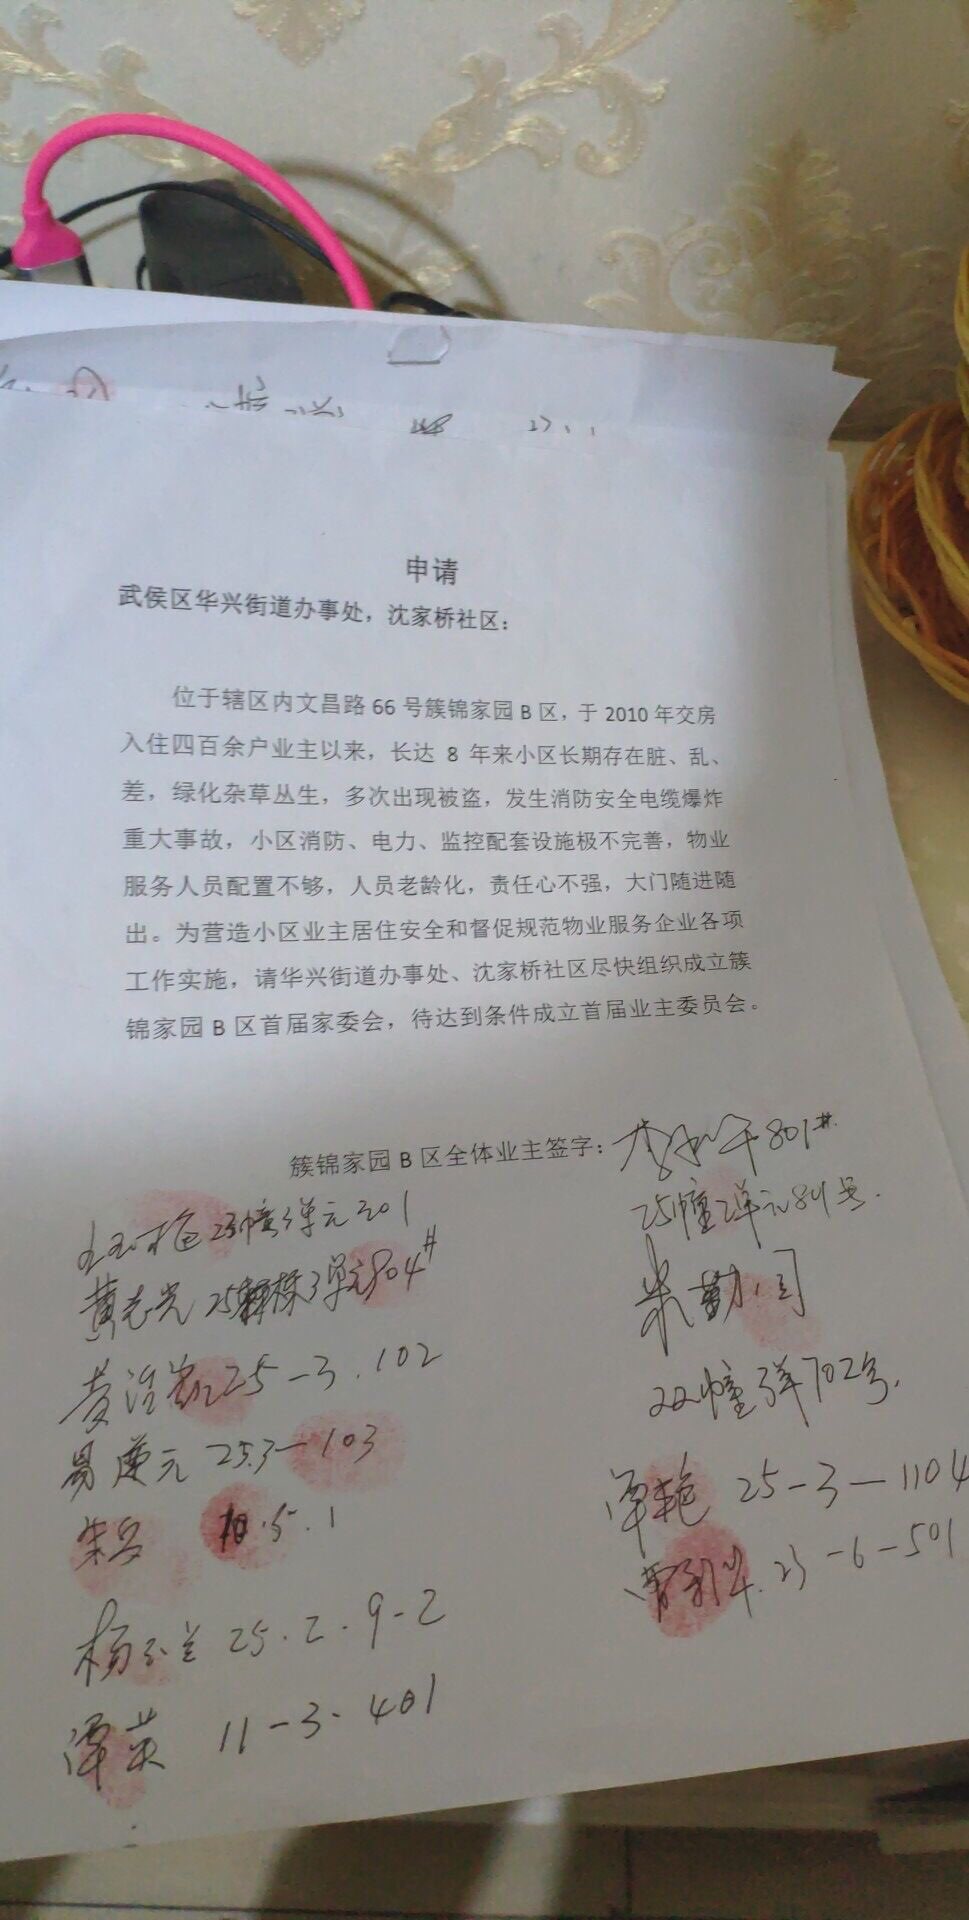 申请
武侯区华兴街道办事处，沈家桥社区：
位于辖区内文昌路66号簇锦家园B区，于2010年交房
入住四百余户业主以来，长达 8 年来小区长期存在脏、乱、
差，绿化杂草丛生，多次出现被盗，发生消防安全电缆爆炸
重大事故，小区消防、电力、监控配套设施极不完善，物业
服务人员配置不够，人员老龄化，责任心不强，大门随进随
出。为营造小区业主居住安全和督促规范物业服务企业各项
工作实施，请华兴街道办事处、沈家桥社区尽快组织成立簇
锦家园B区首届家委会，待达到条件成立首届业主委员会。
簇锦家园B区全体业主签字： 801#
25幢2单元801号.
23幢3单元201
黄志光 25 3单元904#
25-3.102
易莲元 25.3-103
朱勤
22幢3单702号.
谭艳 25-3-1104
10.5.1
23-6-501
杨 兰 25.2.9-2
谭英 11-3-401